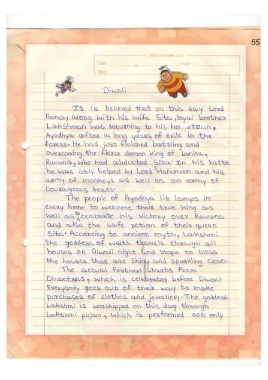 55
Diwali
It is believed that on this day Lord
Rama, along with his wife Sita, loyal brother
Lakshman was returning to his hometown,
Ayodhya after 14 long years of exile in the
forest. He had just finished battling and
overcoming the fierce demon King of Lanka,
Ravana, who had abducted Sita. In his battle
he was ably helped by Lord Hanuman and his
army of monkeys as well as an army of
courageous bears.
The people of Ayodhya lit lamps in
every home to welcome there true king as
well as to celebrate his victory over Ravana
and also the safe return of their queen
Sita. According to ancient myth, Lakshmi
the goddess of wealth travels through all
houses on Diwali night and stops to bless
the houses that are shiny and sparkling clean.
The actual festival starts from
Dhanteras, which is celebrated before Diwali.
Everybody goes out of their way to make
purchases of clothes and jewellery. The goddess
Lakshmi is worshipped on this day through
Lakshmi pujan, which is performed not only